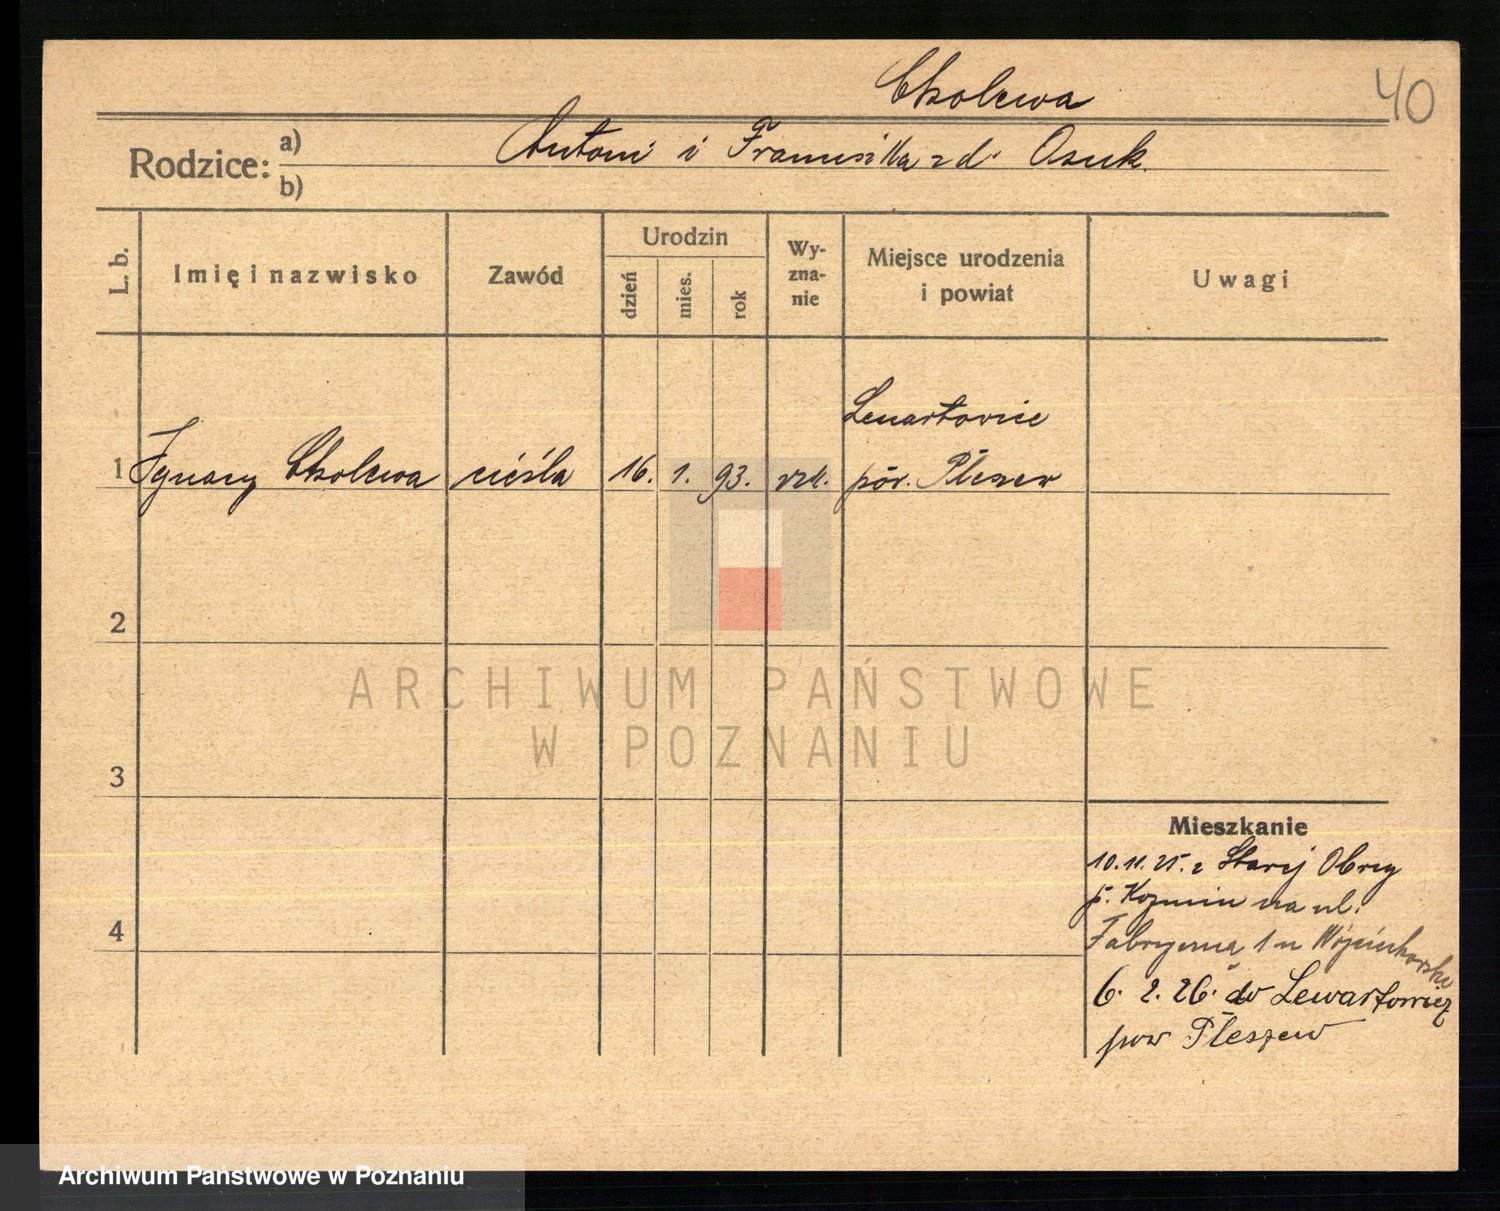 Cholewa
40
Rodzice: a) Antoni i Franciszka zd. Osuk.
b)
L. b.
Imię i nazwisko
Zawód
Urodzin
dzień
mies.
rok
Wy-
zna-
nie
Miejsce urodzenia
i powiat
Uwagi
Lenartowice
1 Ignacy Cholewa cieśla 16. 1. 93. rzk. pow. Pleszew
2
ARCHIWUM PAŃSTWOWE
W POZNANIU
3
Mieszkanie
10.11.25. z Starej Obry
p. Kozmin na ul.
4
Fabryczną 1 u
6. 2. 26. do Lewartowicz
pow Pleszew
Archiwum Państwowe w Poznaniu